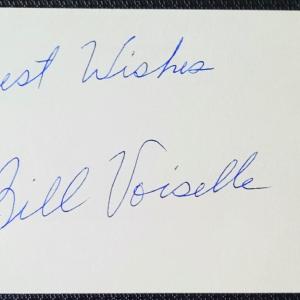 est Wishes
Bill Voiselle